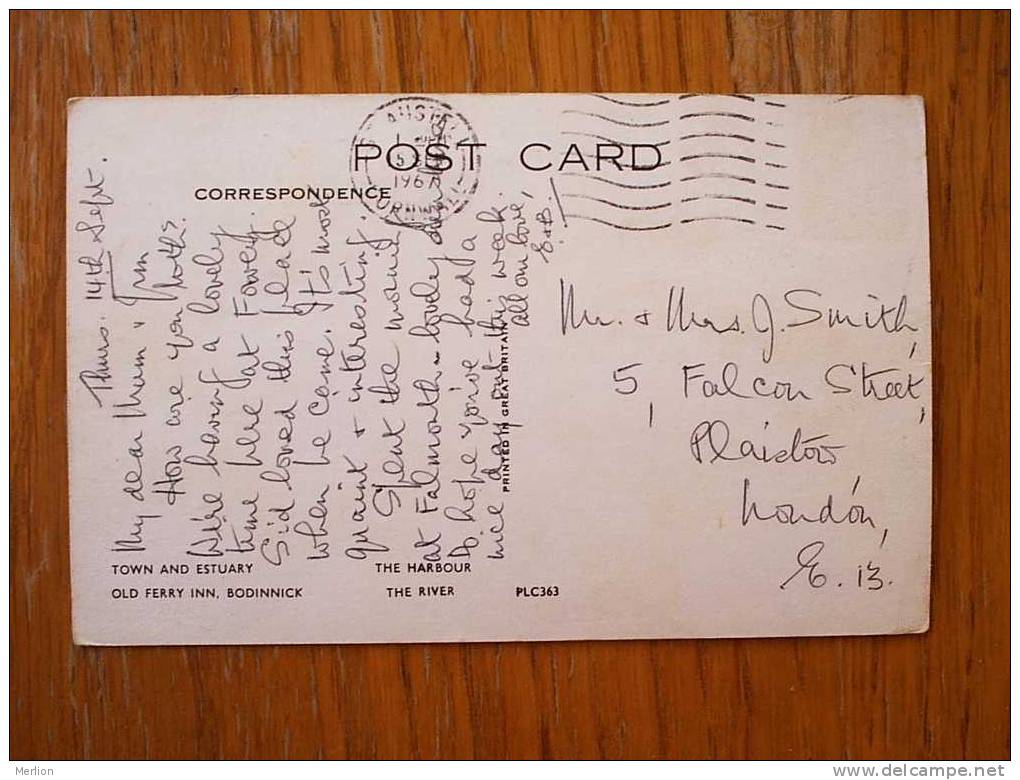 POST CARD
CORRESPONDENCE
AUSTELL
5
1967
CORNWALL
Thurs. 14th Sept.
My dear Mum & Jim
How are you both?
We're having a lovely
time here at Fowey.
Sid loved this place
when he came. It's most
quaint & interesting.
Spent the morning
at Falmouth - lovely
Do hope you've had a
nice day out this week.
all our love,
PRINTED IN GREAT BRITAIN
Mr. & Mrs. J. Smith,
5, Falcon Street,
Plaistow,
London,
E. 13.
TOWN AND ESTUARY THE HARBOUR
OLD FERRY INN, BODINNICK THE RIVER PLC363
Merlion
delcampe.net